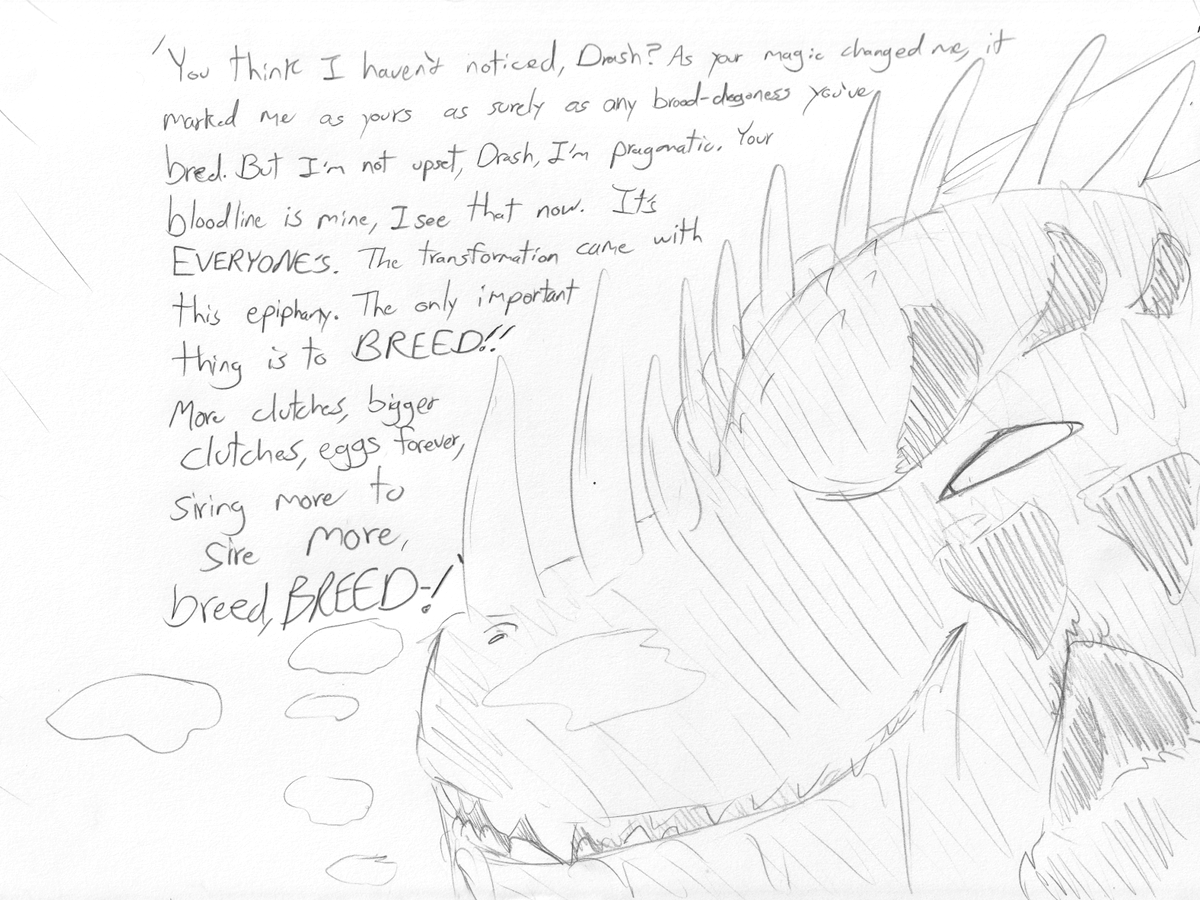 'You think I haven't noticed, Drash? As your magic changed me, it
marked me as yours as surely as any brood-dragoness you've
bred. But I'm not upset, Drash, I'm pragmatic. Your
bloodline is mine, I see that now. It's
EVERYONE'S. The transformation came with
this epiphany. The only important
thing is to BREED!!
More clutches, bigger
clutches, eggs forever,
siring more to
sire more,
breed, BREED-!'